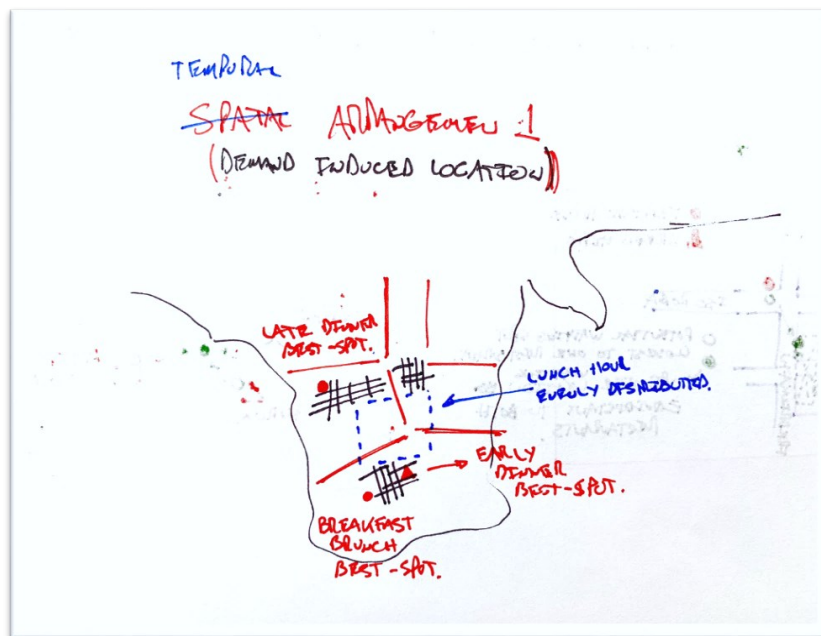 TEMPORAL
SPATAL ARRANGEMEN 1
(DEMAND INDUCED LOCATION)
LATE DINNER
BEST-SPOT.
LUNCH HOUR
EVENLY DISTRIBUTED.
EARLY
DINNER
BEST-SPOT.
BREAKFAST
BRUNCH
BEST-SPOT.